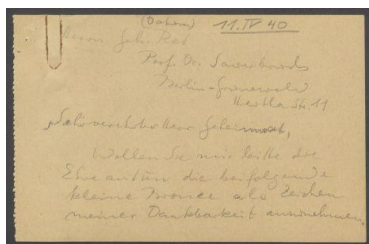 (Daheim) 11. IV 40
Herrn Geh. Rat
Prof. Dr. Sauerbruch
Berlin-Grunewald
Hertha Str. 11
Sehr verehrter Herr Geheimrat,
Wollen Sie mir bitte die
Ehre antun die beifolgende
kleine Bronce als Zeichen
meiner Dankbarkeit anzunehmen.